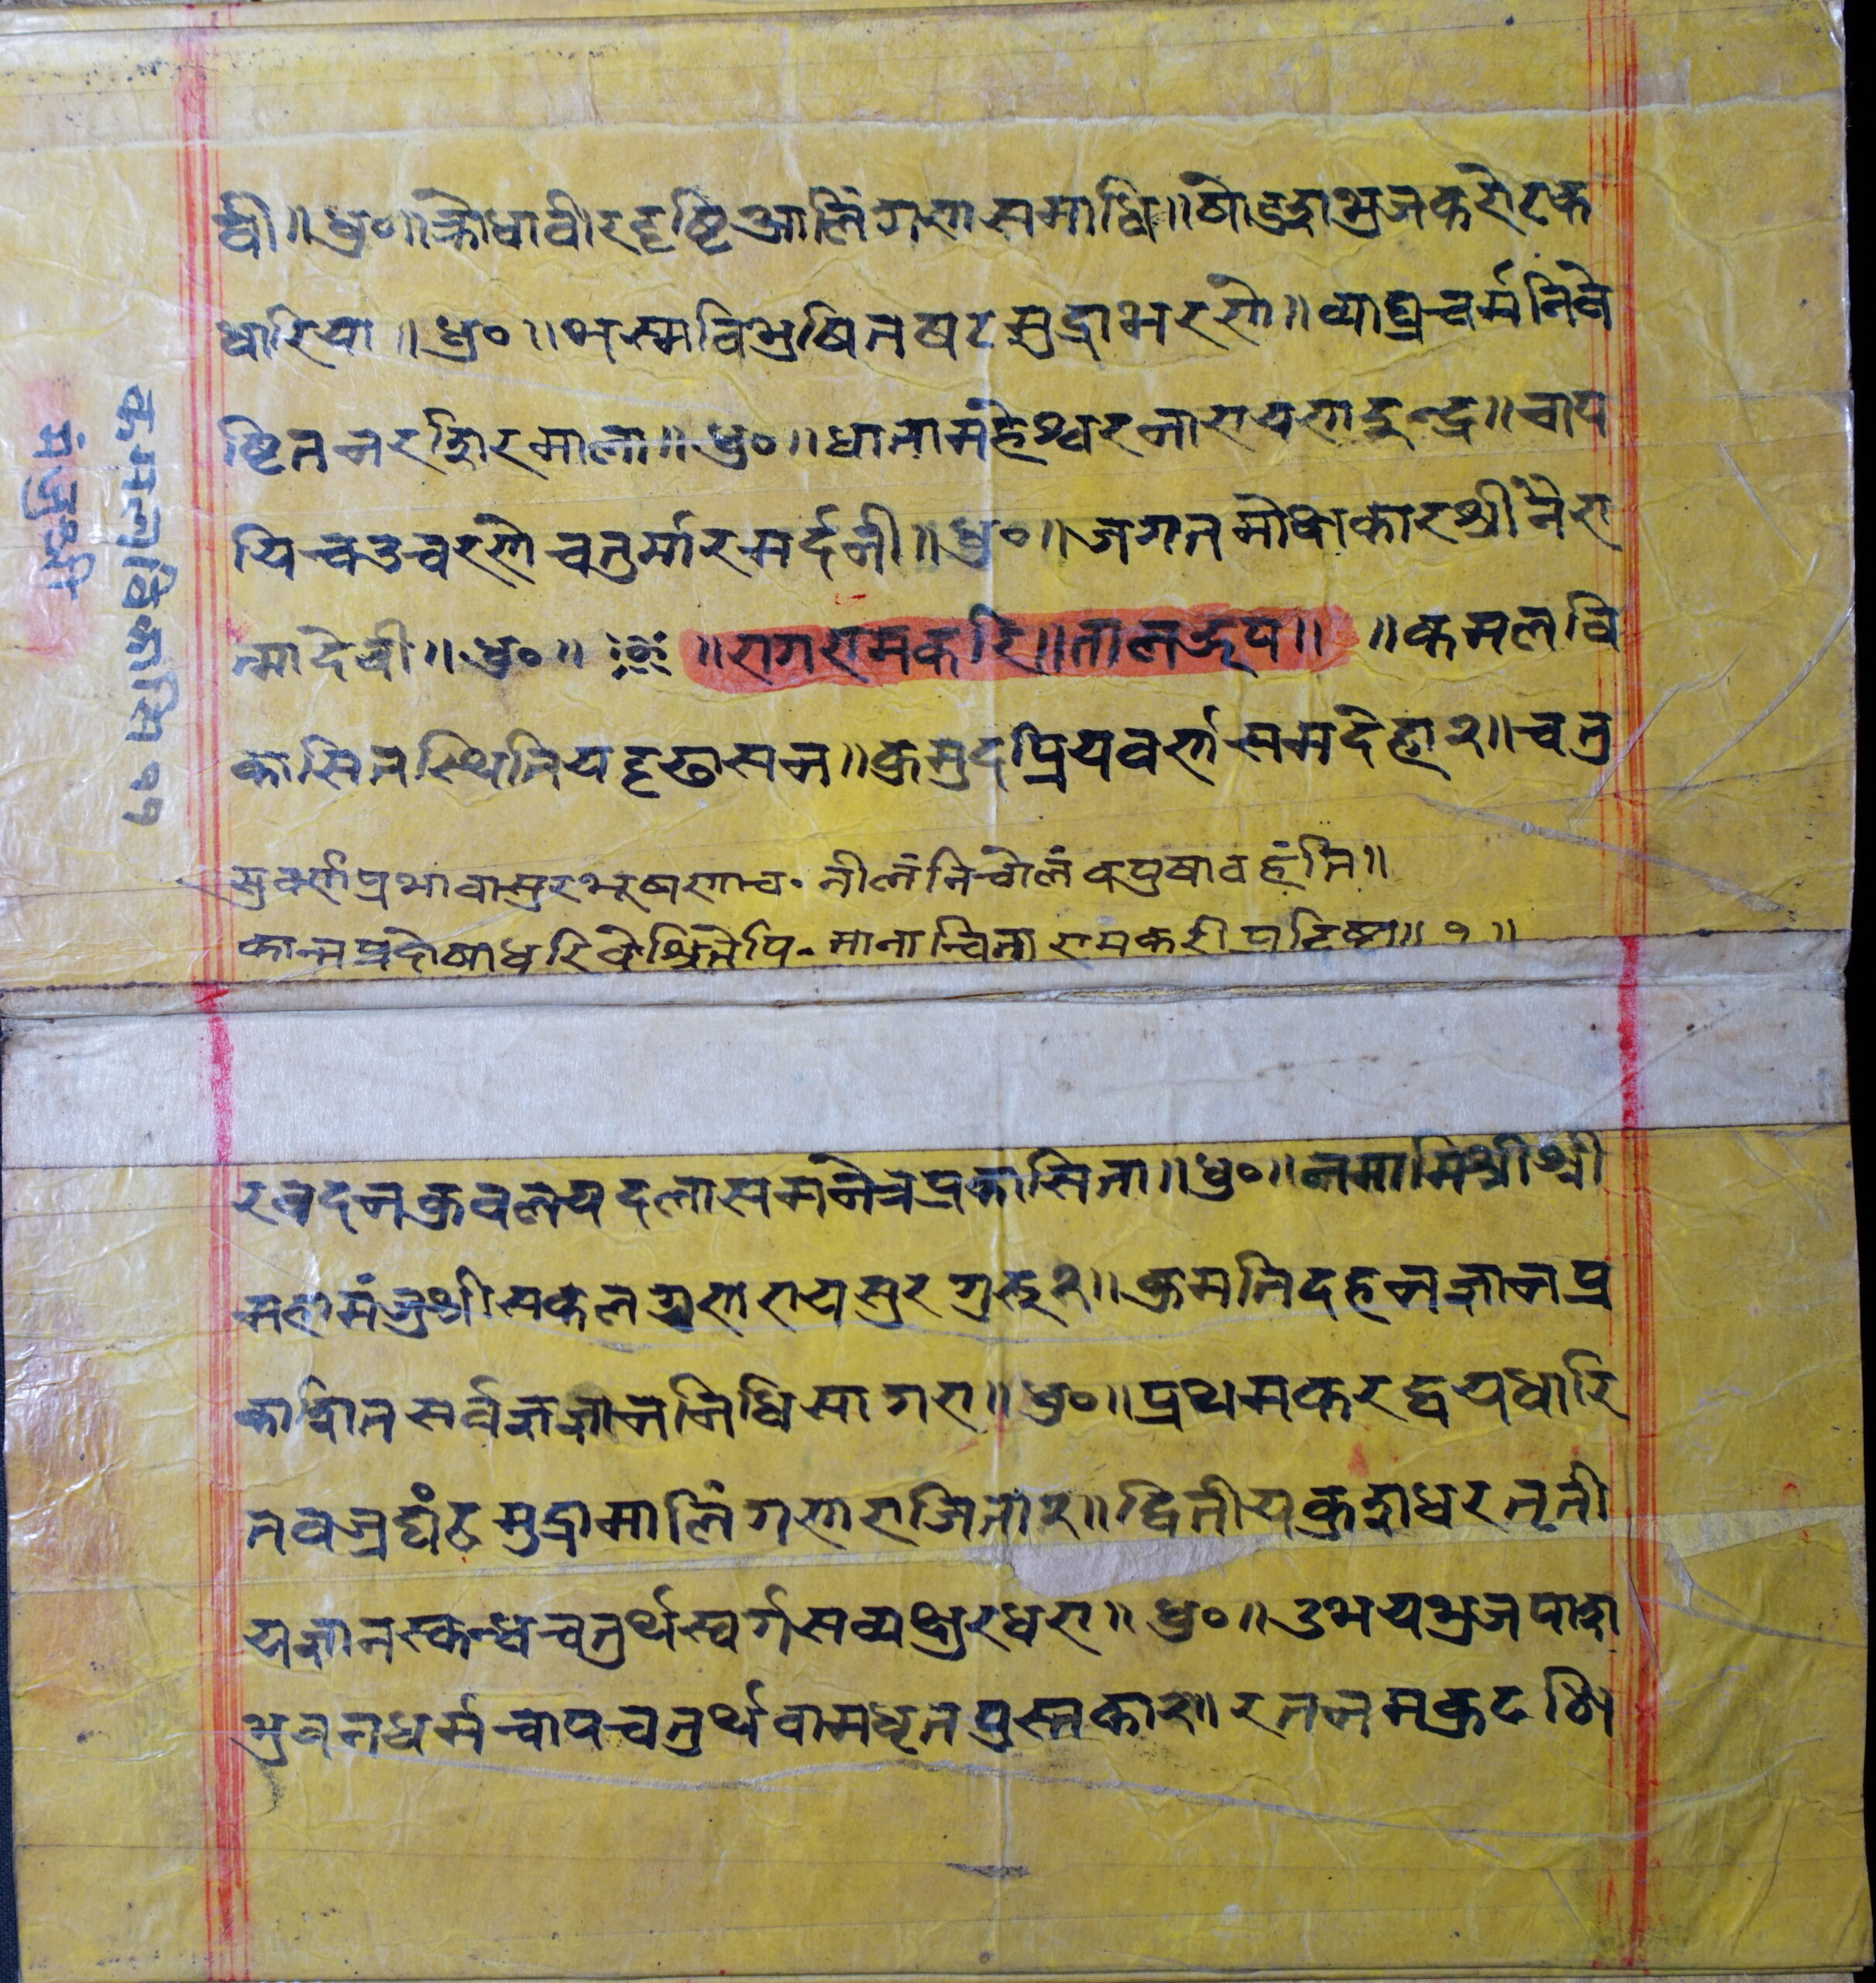 वी॥ध्रु०॥क्रोधावीरदृष्टिआलिंगणसमाधि॥षोडशभुजकरोटक
धारिया॥ध्रु०॥भस्मविभुषितषटमुद्राभरणो॥व्याघ्रचर्मनिवे
ष्टितनरशिरमाला॥ध्रु०॥धातामहेश्वरनारायणइन्द्र॥चाप
यिचउचरणेचतुर्मारमर्दनी॥ध्रु०॥जगतमोक्षकारश्रीनैरा
त्मादेवी॥ध्रु०॥ ॥रागरामकरि॥तालझप॥ ॥कमलवि
कासितस्थितियदृढासन॥कुमुदप्रियवर्णसमदेहा२॥चतु
सुवर्णप्रभाबासुरभूषणाच॰नीलंनिचोलंवपुषावहंति॥
कान्तप्रदोषाधरिवेश्चितेपि॰मानान्वितारामकरीप्रदिष्टा॥१॥
रवदनकुवलयदलासमनेत्रप्रकासिता॥ध्रु०॥नमामिश्रीश्री
महामंजुश्रीसकलगुणरायसुरगुरु२॥कुमतिदहनज्ञानप्र
काशितसर्वज्ञज्ञाननिधिसागरा॥ध्रु०॥प्रथमकरद्वयधारि
तवज्रघंटमुद्रामालिंगणराजिता२॥द्वितीयकुशधरतृती
यज्ञानस्कन्धचतुर्थस्वर्गसव्यक्षुरधरा॥ध्रु०॥उभयभुजपाश
भुवनधर्मचापचतुर्थवामधृतपुस्तका२॥रतनमकुटशि
कमलविकासित११
मंजुश्री